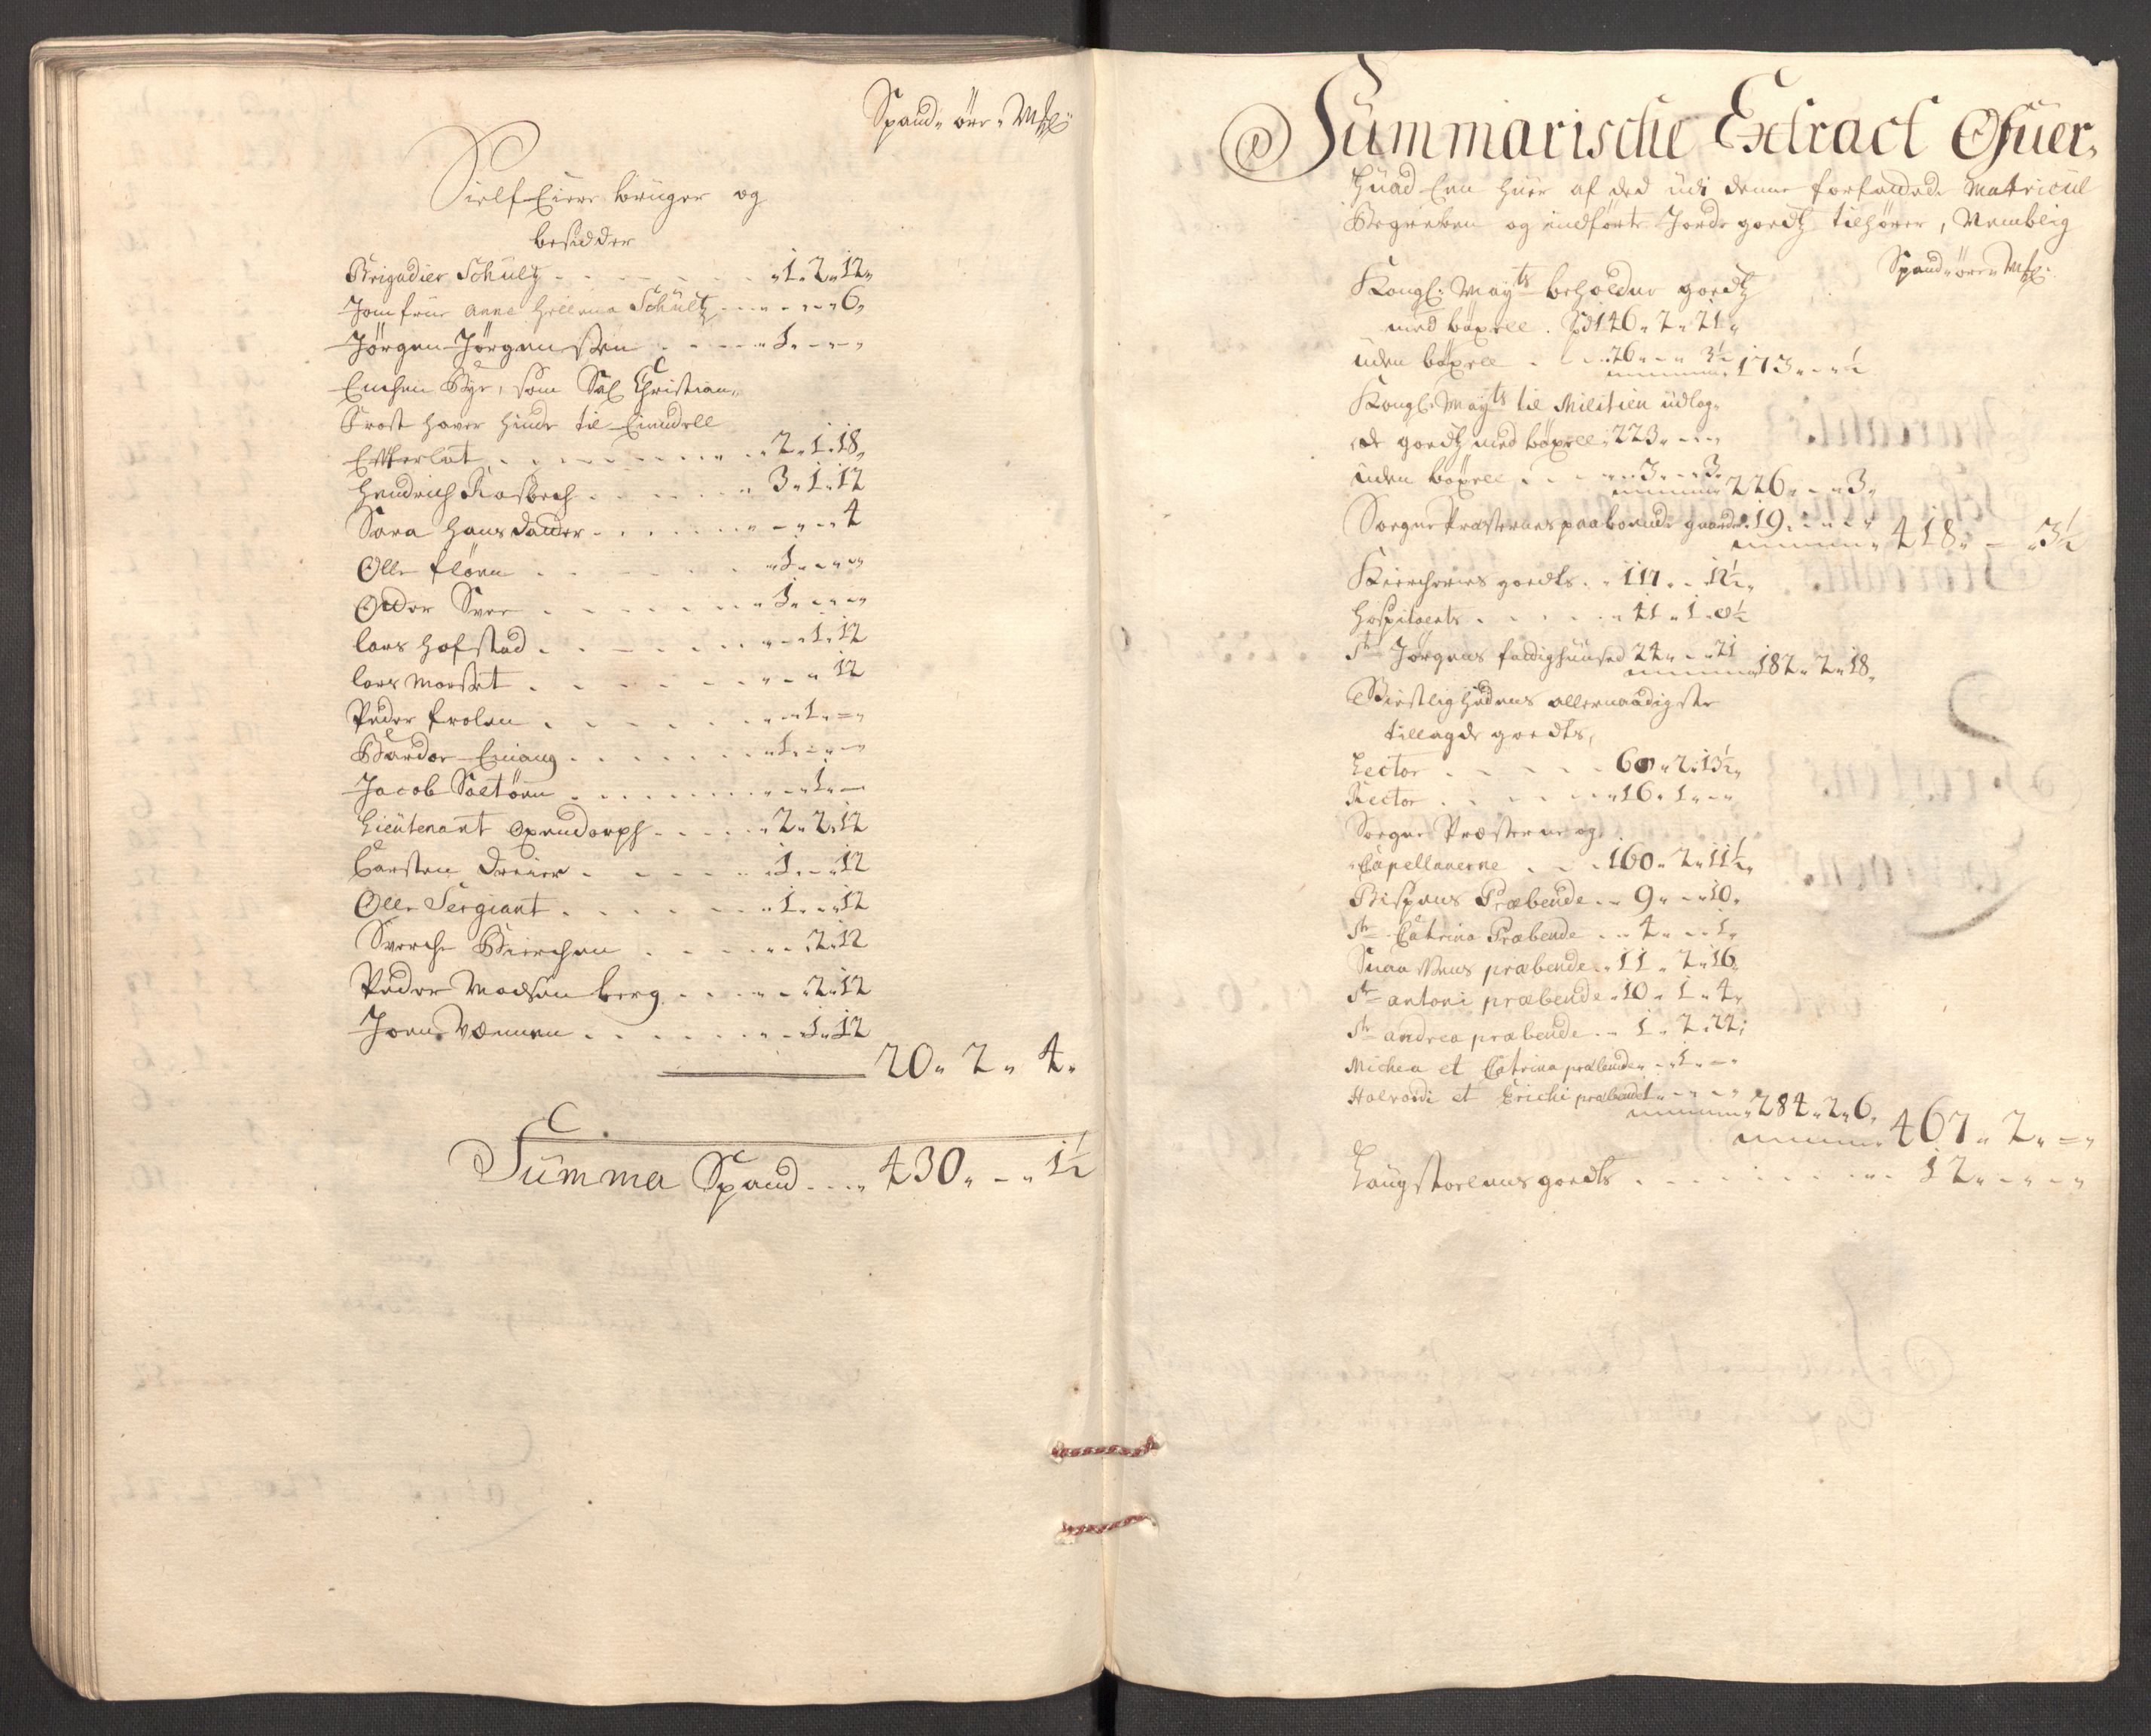 Spand" öre " Mkl
Sielf Eiere bruger og
besidder
Brigadier Schultz - - - - "1"2"12"
Jomfrue Anne Hellena Schultz - - - - 6"
Jörgen Jörgensen - - - "1" - - "
Enchen Byr, som Sal Christian
Frost haver hinde til Eiendell
Efterlat - - - - - "2"1"18"
Hendrich Rosbech - - - - " 3"1"12
Sara Hans daater - - - - - " - " - 4
Olle flören - - - - - "1" - - "
Order Sver - - - - - "1" - - "
Lars Hofstad - - - - - - 1"12
Lars Morset - - - - - " - " 12
Peder frolen - - - - - " - 1" - "
Bardor Eniang - - - - - "1" - - "
Jacob Saltöen - - - - - " - 1" -
Lieutenant Opendorph - - - - "2"2"12
Carsten Dreier - - - - - "1" - "12
Olle Sergiant - - - - - "1" - "12
Sverche Bierchen - - - - - "2"12
Peder Madsen berg - - - - - "2"12
Joen Vænnen - - - - - - 1"12
20" 2" 4"
Summa Spand - - " 430" - " 1½
Summarische Extract Ofuer,
Huad Een huer af ded udi denne forfattede Matricul
Begreben og indförte Jorde goedtz tilhörer, Nemblig
Spand" öre" Mkl
Kongl: Mayts beholdne goedtz
med böxell . Spd 146" 2" 21"
uden böxell - - "26" - " 3½ 173" - " ½
Kongl: Mayts til Militien udlag-
de goedtz med böxell" 223" - - "
uden böxell - - - " 3" - "3" 226" - "3"
Sogne Præsternes paaboende gaarde" 19" - - " 418" - "3½
Kierchernes goedts - " 117" - "12½"
Hospitalets - - - - " 41" 1" 8½
St Jörgens fattighuused 24" - "21 182" 2"18"
Geistlighedens allernaadigste
tillagde goedts,
Lector - - - - - 60"2"13½"
Rector - - - - - "16"1" - "
Sogne Præsterne og
Capellanerne - - - 160" 2"11½"
Bispens Præbende - " 9" - "10"
St Catrina Præbende - " 4" - "1"
Snaa Vens præbende " 11" 2"16"
St antoni præbende " 10" 1"4"
St andrea præbende - " 1" 2"22"
Michea et Catrina præbende " - "1" - "
Halvordi et Erichi præbende 1" - - " 284"2"6" 467" 2" - "
Laugstoelens goedts - - - - - - - - 12" - " - "